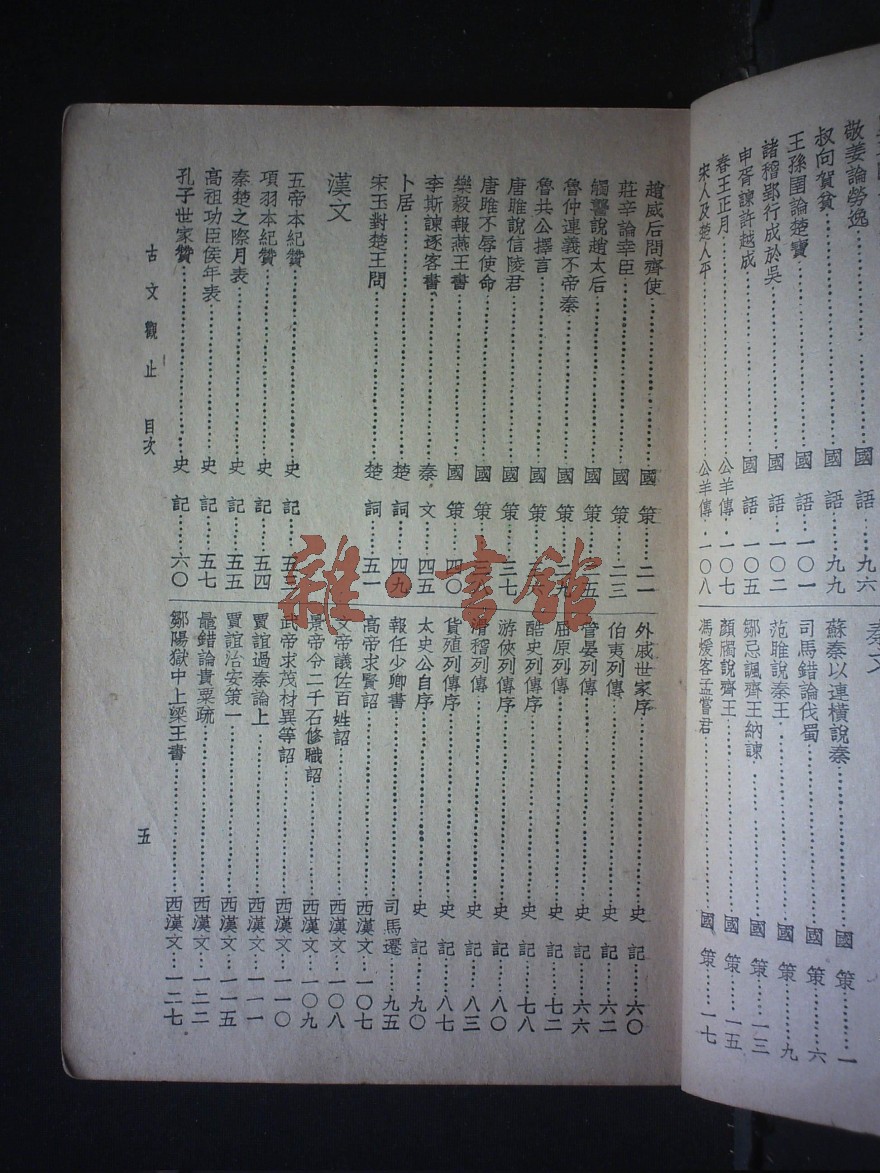 敬姜論勞逸 國語 九六
叔向賀貧 國語 九九
王孫圉論楚寶 國語 一〇一
諸稽郢行成於吳 國語 一〇二
申胥諫許越成 國語 一〇五
春王正月 公羊傳 一〇七
宋人及楚人平 公羊傳 一〇八
秦文
蘇秦以連橫說秦 國策 一
司馬錯論伐蜀 國策 六
范雎說秦王 國策 九
鄒忌諷齊王納諫 國策 一三
顏斶說齊王 國策 一五
馮煖客孟嘗君 國策 一七
趙威后問齊使 國策 二一
莊辛論幸臣 國策 二三
觸讋說趙太后 國策 二五
魯仲連義不帝秦 國策 二九
魯共公擇言 國策
唐雎說信陵君 國策 三七
唐雎不辱使命 國策 三八
樂毅報燕王書 國策 四〇
李斯諫逐客書 秦文 四五
卜居 楚詞 四九
宋玉對楚王問 楚詞 五一
漢文
五帝本紀贊 史記 五三
項羽本紀贊 史記 五四
秦楚之際月表 史記 五五
高祖功臣侯年表 史記 五七
孔子世家贊 史記 六〇
外戚世家序 史記 六〇
伯夷列傳 史記 六二
管晏列傳 史記 六六
屈原列傳 史記 七二
酷吏列傳序 史記 七八
游俠列傳序 史記 八〇
滑稽列傳 史記 八三
貨殖列傳序 史記 八七
太史公自序 史記 九〇
報任少卿書 司馬遷 九五
高帝求賢詔 西漢文 一〇七
文帝議佐百姓詔 西漢文 一〇八
景帝令二千石修職詔 西漢文 一〇九
武帝求茂材異等詔 西漢文 一一〇
賈誼過秦論上 西漢文 一一一
賈誼治安策一 西漢文 一一五
鼂錯論貴粟疏 西漢文 一二二
鄒陽獄中上梁王書 西漢文 一二七
古文觀止 目次
五
雜·書館